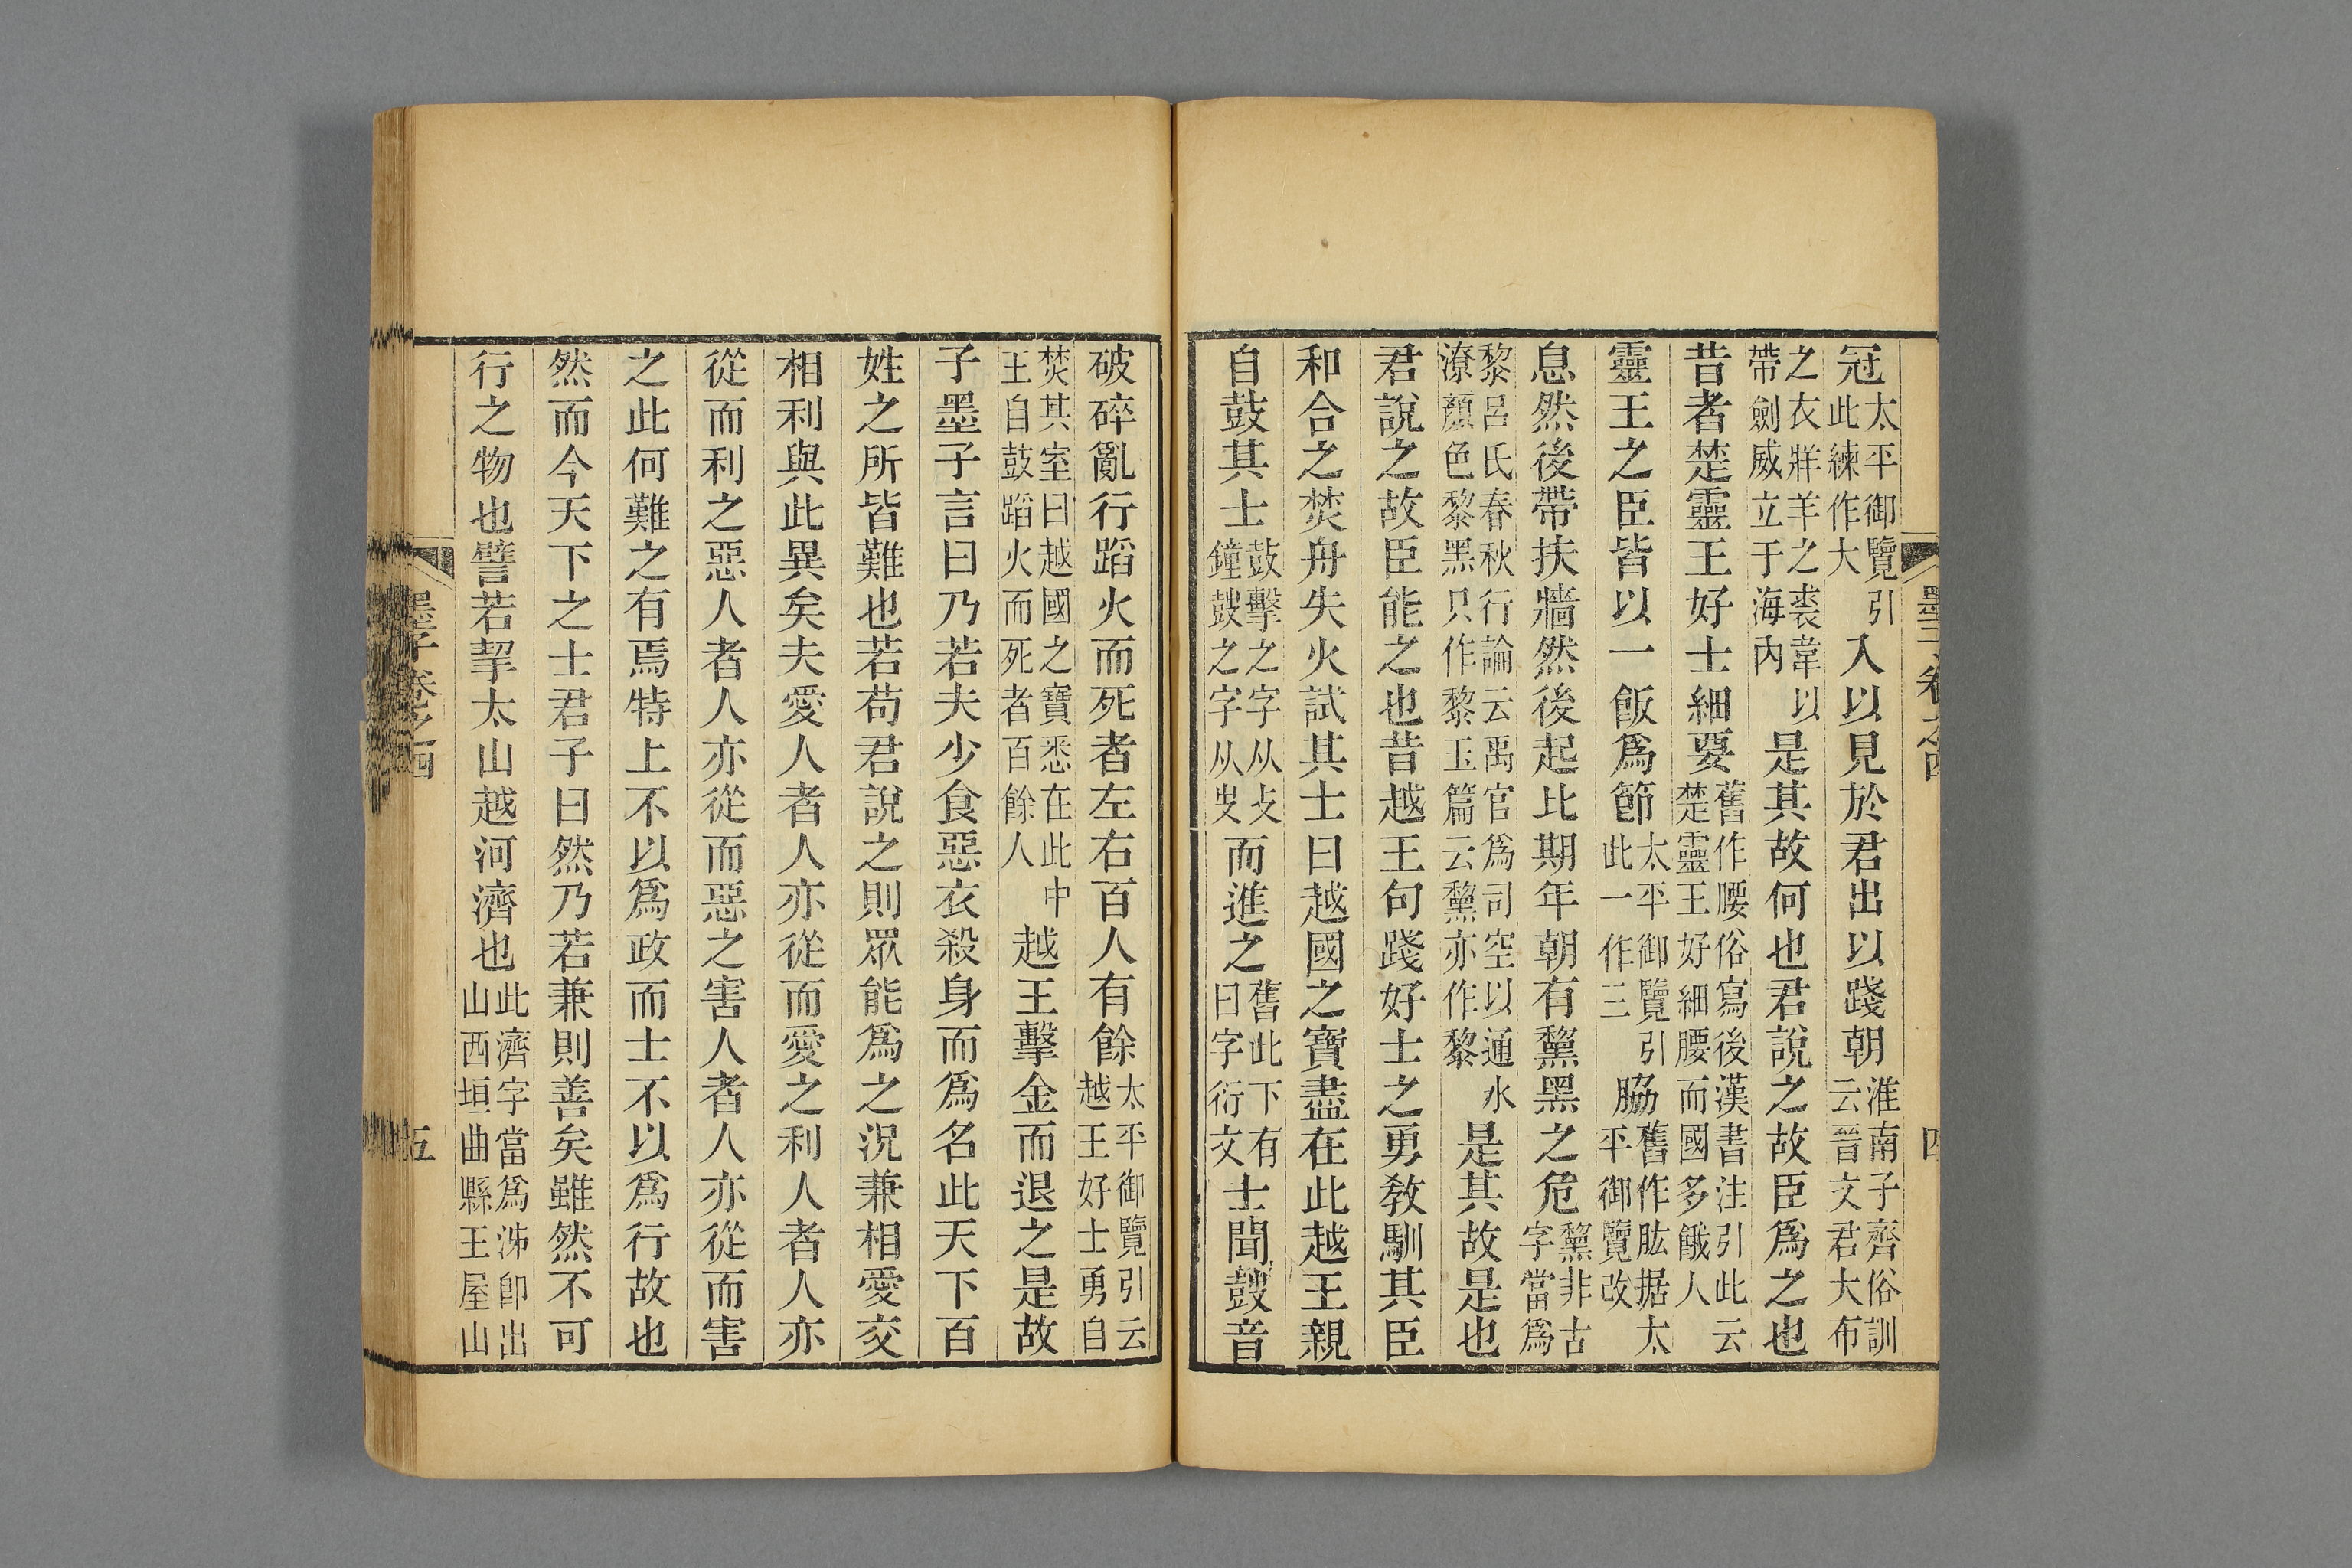 墨子卷之四 四
冠太平御覽引此練作大入以見於君出以踐朝淮南子齊俗訓云晉文君大布
之衣牂羊之裘韋以帶劍威立于海內是其故何也君說之故臣爲之也
昔者楚靈王好士細要舊作腰俗寫後漢書注引此云楚靈王好細腰而國多餓人
靈王之臣皆以一飯爲節太平御覽引此一作三脇舊作肱据太平御覽改
息然後帶扶牆然後起比期年朝有黧黑之危黧非古字當爲
黎呂氏春秋行論云禹官爲司空以通水潦顏色黎黑只作黎玉篇云黧亦作黎是其故是也
君說之故臣能之也昔越王句踐好士之勇敎馴其臣
和合之焚舟失火試其士曰越國之寶盡在此越王親
自鼓其士鼓擊之字从攴鐘鼓之字从𠬢而進之舊此下有曰字衍文士聞鼓音
破碎亂行蹈火而死者左右百人有餘太平御覽引云越王好士勇自
焚其室曰越國之寶悉在此中王自鼓蹈火而死者百餘人越王擊金而退之是故
子墨子言曰乃若夫少食惡衣殺身而爲名此天下百
姓之所皆難也若苟君說之則眾能爲之況兼相愛交
相利與此異矣夫愛人者人亦從而愛之利人者人亦
從而利之惡人者人亦從而惡之害人者人亦從而害
之此何難之有焉特上不以爲政而士不以爲行故也
然而今天下之士君子曰然乃若兼則善矣雖然不可
行之物也譬若挈太山越河濟也此濟字當爲泲卽出山西垣曲縣王屋山
墨子卷之四 五